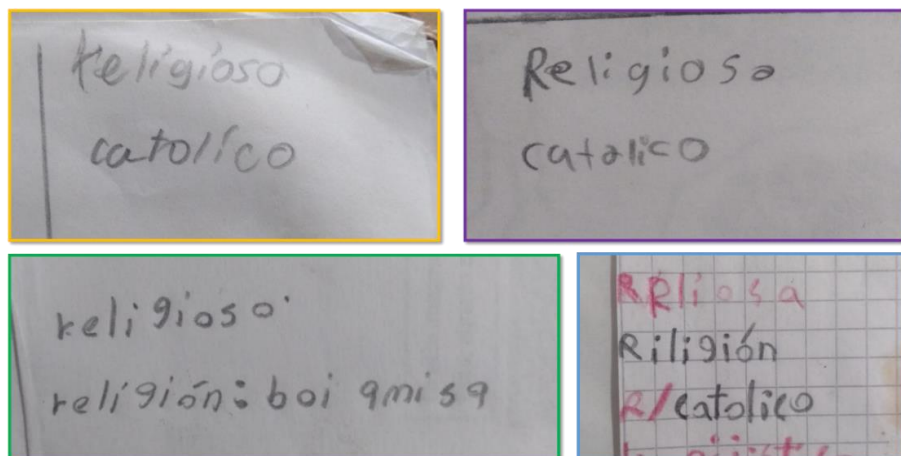 Religioso
catolico
Religioso
catolico
religioso.
religión: boi amisa
RRliosa
Riligión
R/catolico